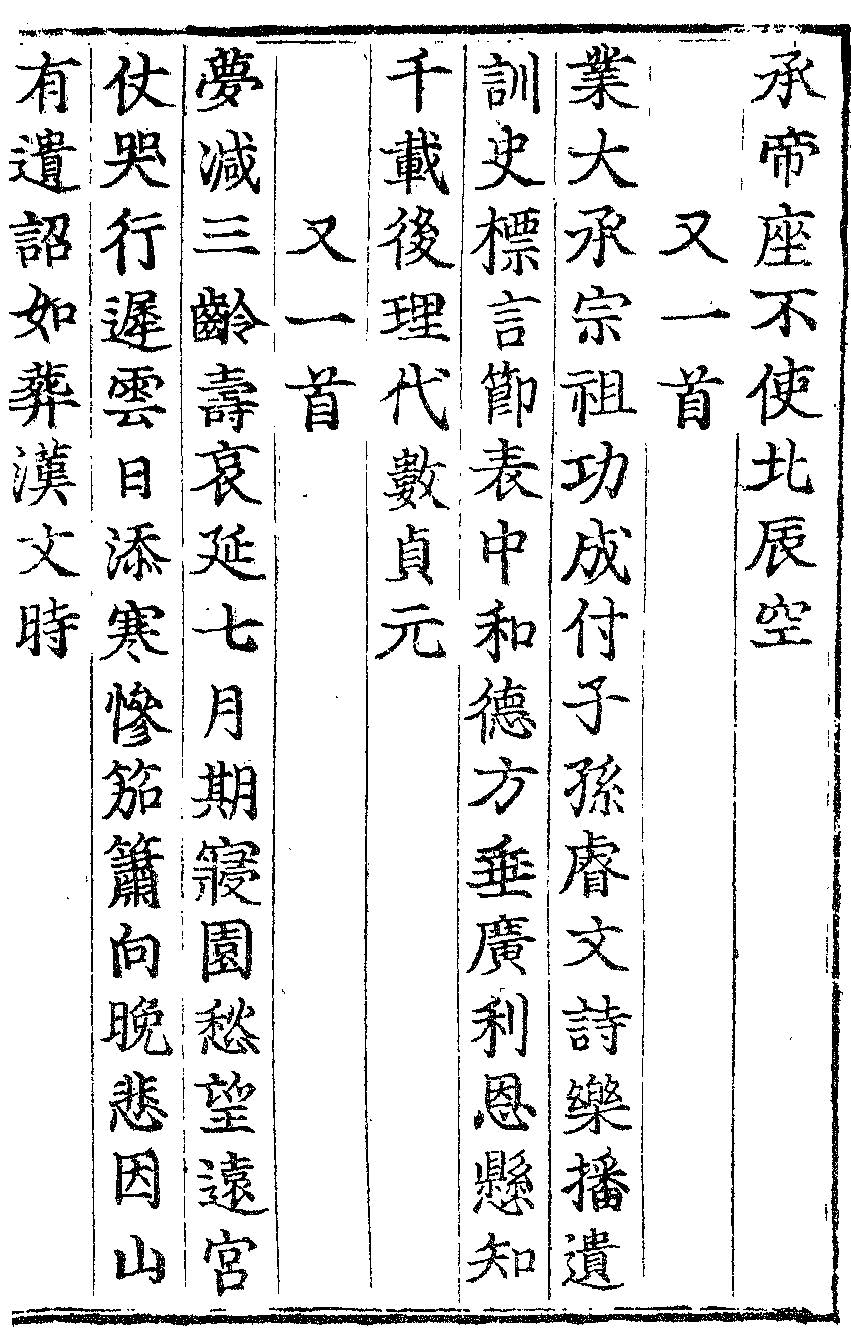 承帝座不使北辰空
又一首
業大承宗祖功成付子孫睿文詩樂播遺
訓史標言節表中和德方垂廣利恩懸知
千載後理代數貞元
又一首
夢減三齡壽哀延七月期寢園愁望遠宮
仗哭行遲雲日添寒慘笳簫向晚悲因山
有遺詔如葬漢文時